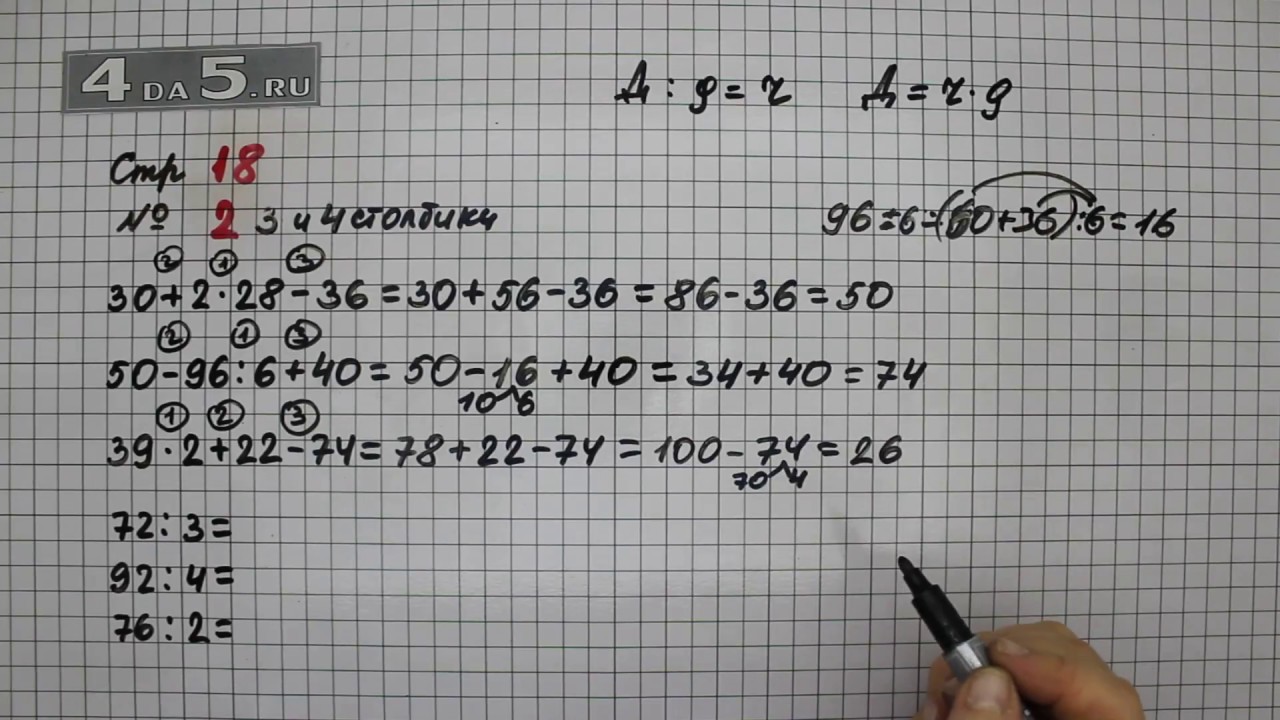 4 DA 5.RU
Д : д = ч Д = ч · д
Стр 18
№ 2 3 и 4 столбики
96 : 6 = (60+36) : 6 = 16
② ① ③
30 + 2 · 28 - 36 = 30 + 56 - 36 = 86 - 36 = 50
② ① ③
50 - 96 : 6 + 40 = 50 - 16 + 40 = 34 + 40 = 74
10 6
① ② ③
39 · 2 + 22 - 74 = 78 + 22 - 74 = 100 - 74 = 26
70 4
72 : 3 =
92 : 4 =
76 : 2 =